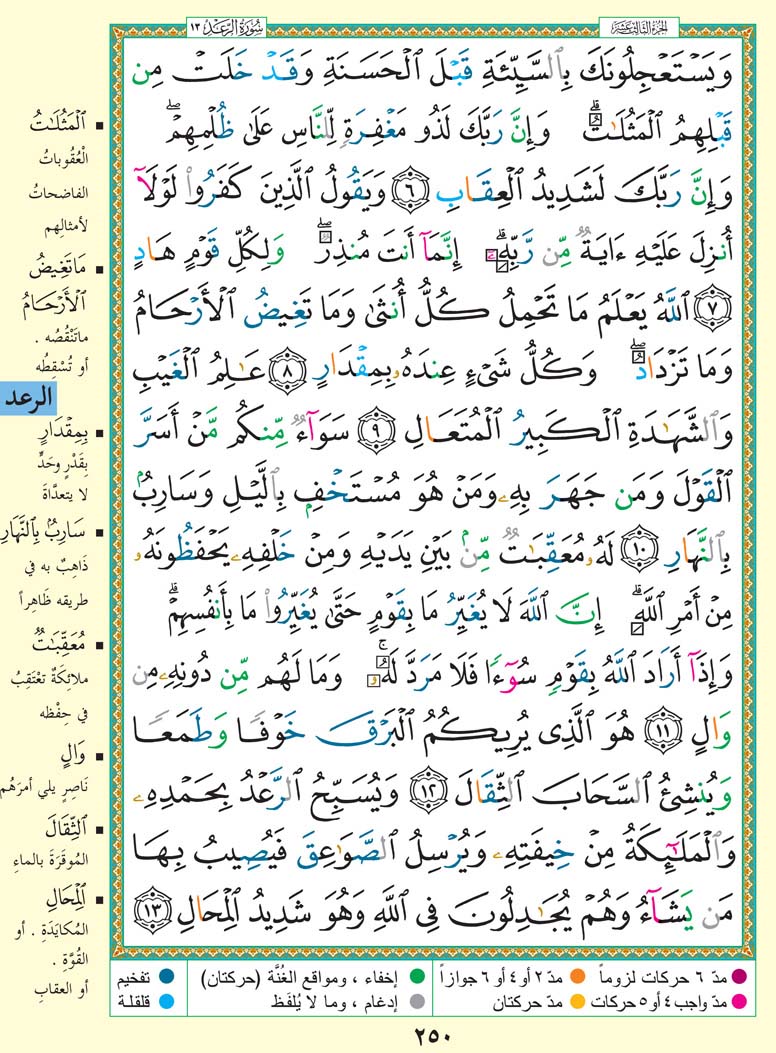 الجزء الثالث عشر
سورة الرعد ١٣
وَيَسْتَعْجِلُونَكَ بِٱلسَّيِّئَةِ قَبْلَ ٱلْحَسَنَةِ وَقَدْ خَلَتْ مِن
قَبْلِهِمُ ٱلْمَثُلَٰتُ ۗ وَإِنَّ رَبَّكَ لَذُو مَغْفِرَةٍ لِّلنَّاسِ عَلَىٰ ظُلْمِهِمْ ۖ
وَإِنَّ رَبَّكَ لَشَدِيدُ ٱلْعِقَابِ ٦ وَيَقُولُ ٱلَّذِينَ كَفَرُوا۟ لَوْلَآ
أُنزِلَ عَلَيْهِ ءَايَةٌ مِّن رَّبِّهِۦٓ ۗ إِنَّمَآ أَنتَ مُنذِرٌ ۖ وَلِكُلِّ قَوْمٍ هَادٍ
٧ ٱللَّهُ يَعْلَمُ مَا تَحْمِلُ كُلُّ أُنثَىٰ وَمَا تَغِيضُ ٱلْأَرْحَامُ
وَمَا تَزْدَادُ ۖ وَكُلُّ شَىْءٍ عِندَهُۥ بِمِقْدَارٍ ٨ عَٰلِمُ ٱلْغَيْبِ
وَٱلشَّهَٰدَةِ ٱلْكَبِيرُ ٱلْمُتَعَالِ ٩ سَوَآءٌ مِّنكُم مَّنْ أَسَرَّ
ٱلْقَوْلَ وَمَن جَهَرَ بِهِۦ وَمَنْ هُوَ مُسْتَخْفٍۭ بِٱلَّيْلِ وَسَارِبٌۢ
بِٱلنَّهَارِ ١٠ لَهُۥ مُعَقِّبَٰتٌ مِّنۢ بَيْنِ يَدَيْهِ وَمِنْ خَلْفِهِۦ يَحْفَظُونَهُۥ
مِنْ أَمْرِ ٱللَّهِ ۗ إِنَّ ٱللَّهَ لَا يُغَيِّرُ مَا بِقَوْمٍ حَتَّىٰ يُغَيِّرُوا۟ مَا بِأَنفُسِهِمْ ۗ
وَإِذَآ أَرَادَ ٱللَّهُ بِقَوْمٍ سُوٓءًا فَلَا مَرَدَّ لَهُۥ ۚ وَمَا لَهُم مِّن دُونِهِۦ مِن
وَالٍ ١١ هُوَ ٱلَّذِى يُرِيكُمُ ٱلْبَرْقَ خَوْفًا وَطَمَعًا
وَيُنشِئُ ٱلسَّحَابَ ٱلثِّقَالَ ١٢ وَيُسَبِّحُ ٱلرَّعْدُ بِحَمْدِهِۦ
وَٱلْمَلَٰٓئِكَةُ مِنْ خِيفَتِهِۦ وَيُرْسِلُ ٱلصَّوَٰعِقَ فَيُصِيبُ بِهَا
مَن يَشَآءُ وَهُمْ يُجَٰدِلُونَ فِى ٱللَّهِ وَهُوَ شَدِيدُ ٱلْمِحَالِ ١٣
ٱلْمَثُلَٰتُ
الْعُقُوباتُ
الفاضحاتُ
لأمثالِهم
مَا تَغِيضُ
ٱلْأَرْحَامُ
ماتَنْقُصُه .
أو تُسْقِطُه
الرعد
بِمِقْدَارٍ
بِقَدْرٍ وحَدٍّ
لا يتعدَّاهُ
سَارِبٌۢ بِٱلنَّهَارِ
ذَاهِبٌ به في
طريقه ظَاهِراً
مُعَقِّبَٰتٌ
ملائِكَةٌ تَعْتَقِبُ
في حِفْظه
وَالٍ
نَاصِرٍ يلي أمرَهُم
ٱلثِّقَالَ
المُوقَرَةَ بالماءِ
ٱلْمِحَالِ
المُكايَدَةِ . أو
القُوَّةِ .
أو العقابِ
مدّ ٦ حركات لزوماً
مدّ ٢ أو ٤ أو ٦ جوازاً
إخفاء ، ومواقع الغُنَّة (حركتان)
تفخيم
مدّ واجب ٤ أو ٥ حركات
مدّ حركتان
إدغام ، وما لا يُلفَظ
قلقلة
٢٥٠